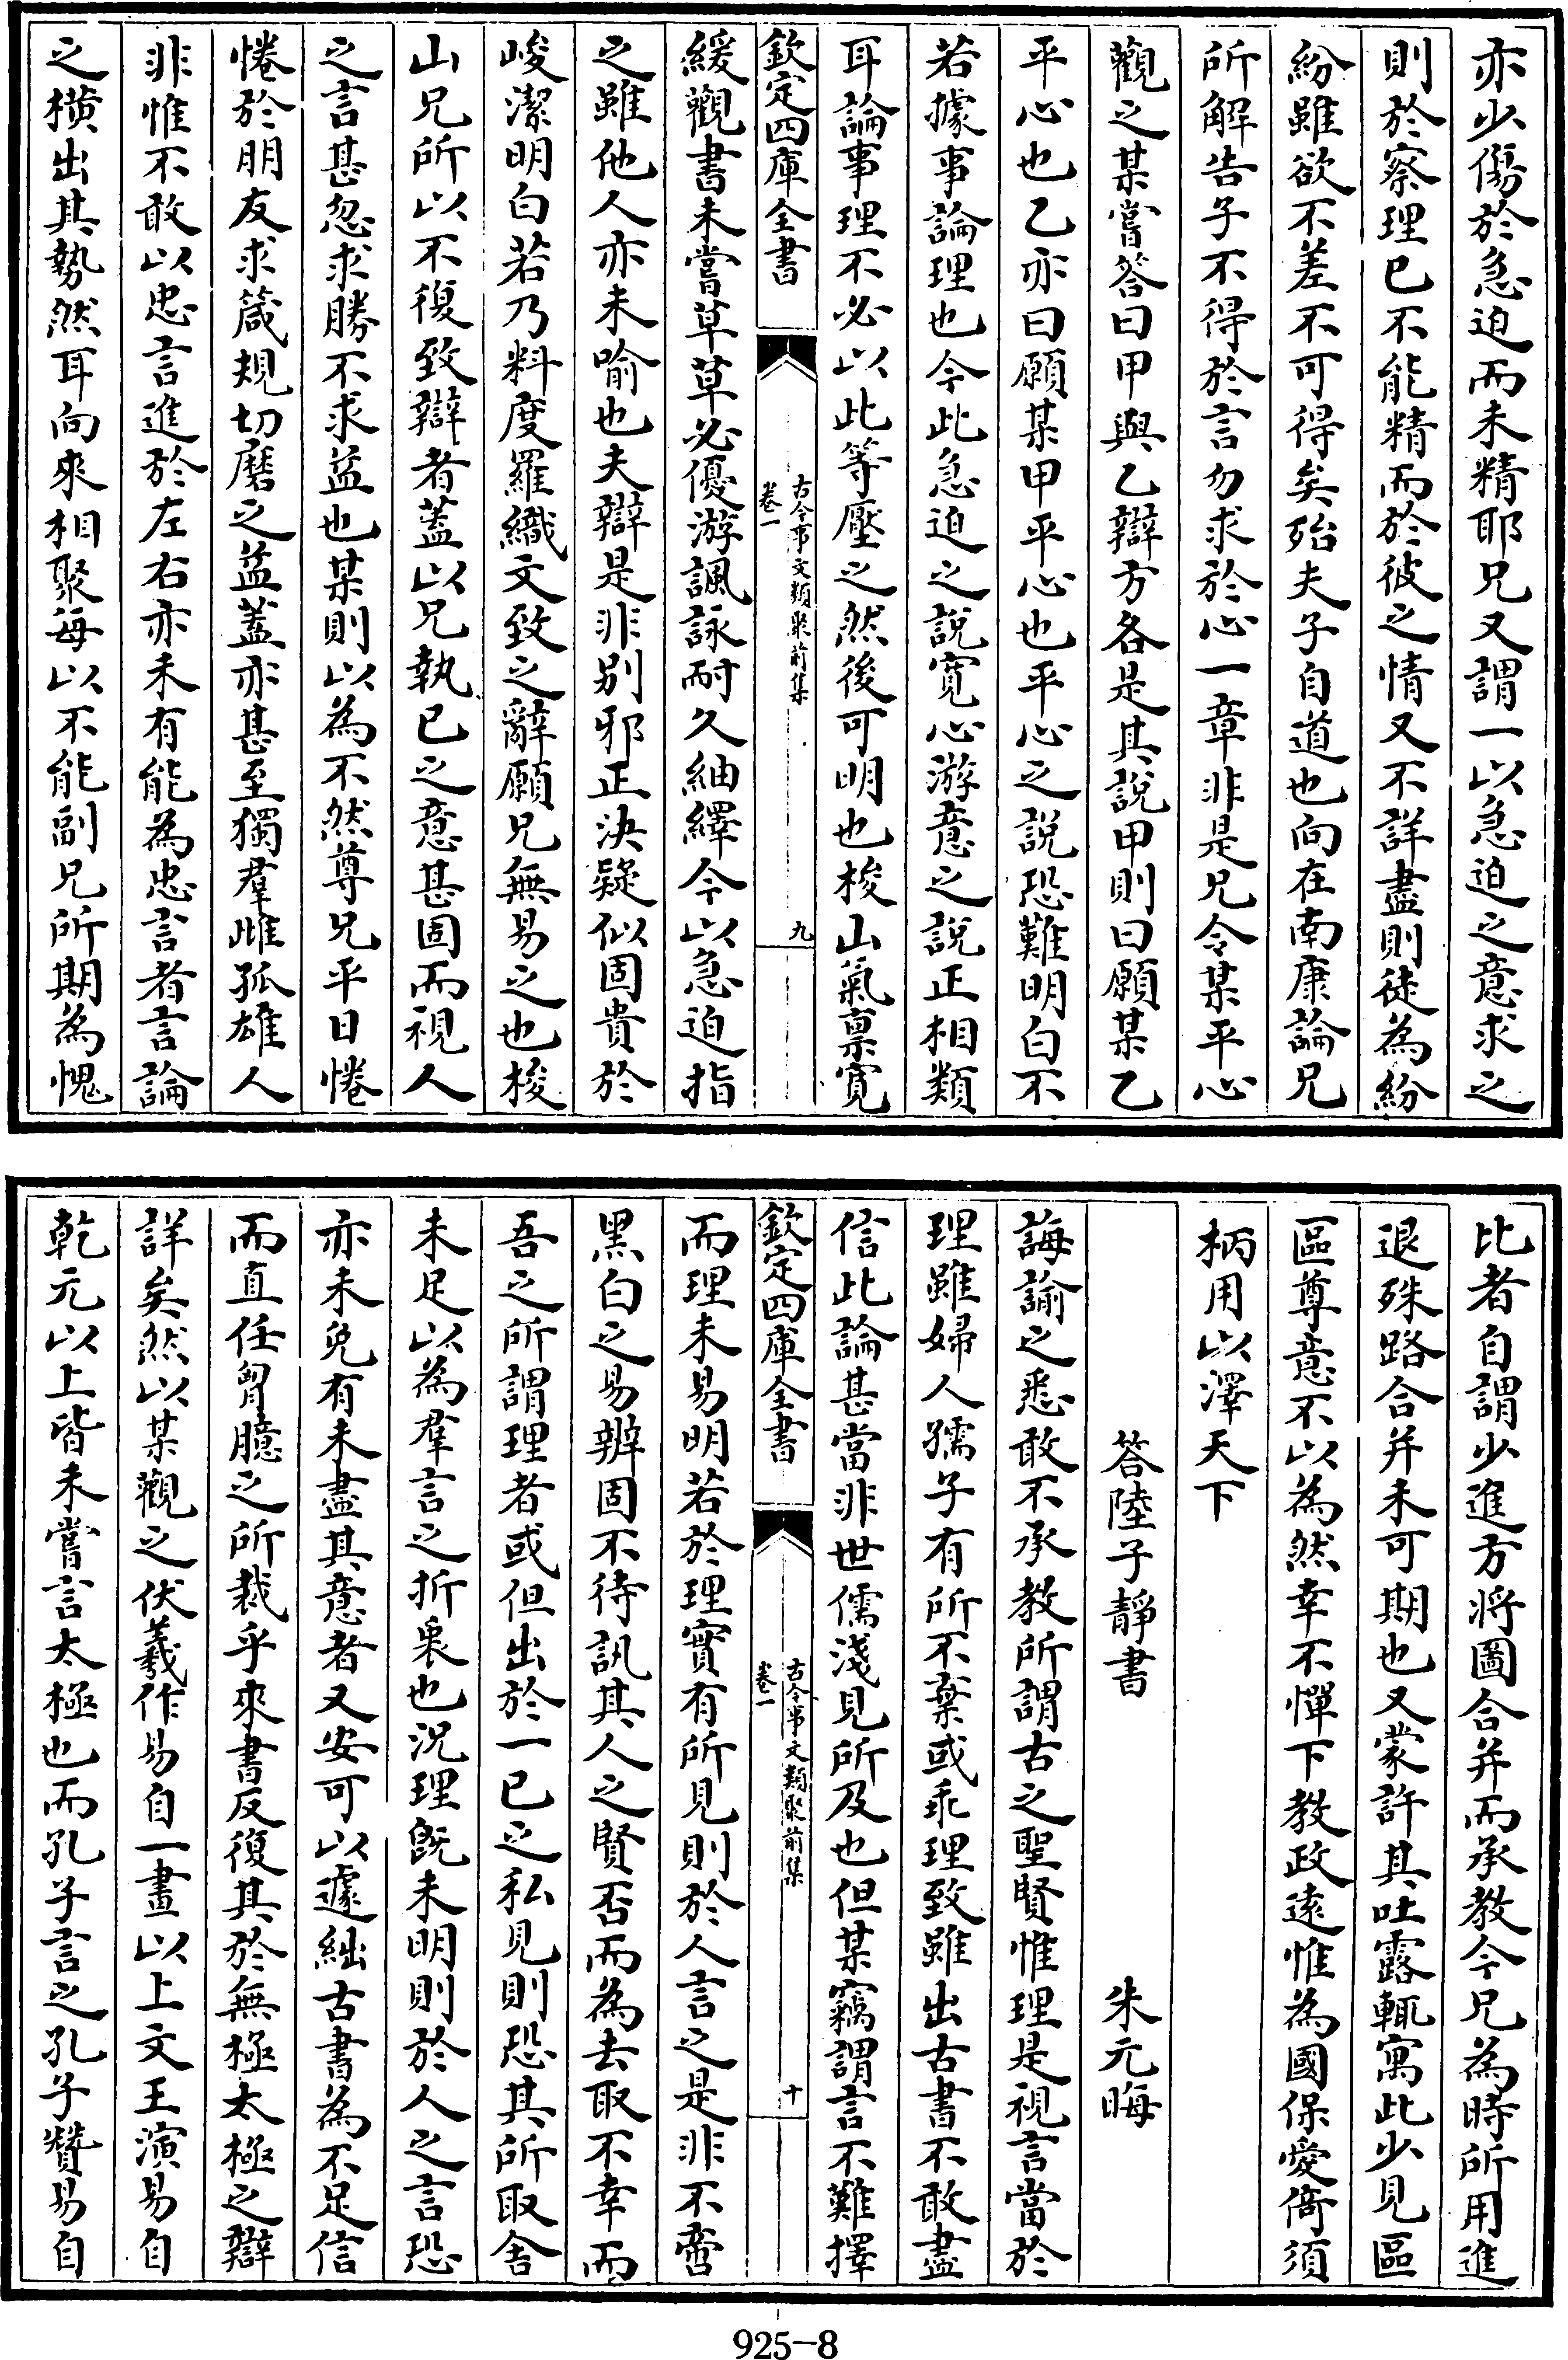 亦少傷於急迫而未精耶兄又謂一以急迫之意求之
則於察理已不能精而於彼之情又不詳盡則徒為紛
紛雖欲不差不可得矣殆夫子自道也向在南康論兄
所解告子不得於言勿求於心一章非是兄令某平心
觀之某嘗答曰甲與乙辯方各是其說甲則曰願某乙
平心也乙亦曰願某甲平心也平心之說恐難明白不
若據事論理也今此急迫之說寬心游意之說正相類
耳論事理不必以此等壓之然後可明也梭山氣稟寬
欽定四庫全書
古今事文類聚前集
卷一
九
緩觀書未嘗草草必優游諷詠耐久紬繹今以急迫指
之雖他人亦未喻也夫辯是非別邪正決疑似固貴於
峻潔明白若乃料度羅織文致之辭願兄無易之也梭
山兄所以不復致辯者蓋以兄執已之意甚固而視人
之言甚忽求勝不求益也某則以為不然尊兄平日惓
惓於朋友求箴規切磨之益蓋亦甚至獨羣雌孤雄人
非惟不敢以忠言進於左右亦未有能為忠言者言論
之橫出其勢然耳向來相聚每以不能副兄所期為愧
比者自謂少進方將圖合并而承教今兄為時所用進
退殊路合并未可期也又蒙許其吐露輒寓此少見區
區尊意不以為然幸不憚下教政遠惟為國保愛倚須
柄用以澤天下
答陸子靜書　朱元晦
誨諭之悉敢不承教所謂古之聖賢惟理是視言當於
理雖婦人孺子有所不棄或乖理致雖出古書不敢盡
信此論甚當非世儒淺見所及也但某竊謂言不難擇
欽定四庫全書
古今事文類聚前集
卷一
十
而理未易明若於理實有所見則於人言之是非不啻
黑白之易辨固不待訊其人之賢否而為去取不幸而
吾之所謂理者或但出於一已之私見則恐其所取舍
未足以為羣言之折衷也況理旣未明則於人之言恐
亦未免有未盡其意者又安可以遽絀古書為不足信
而直任胷臆之所裁乎來書反復其於無極太極之辯
詳矣然以某觀之伏羲作易自一畫以上文王演易自
乾元以上皆未嘗言太極也而孔子言之孔子贊易自
925-8